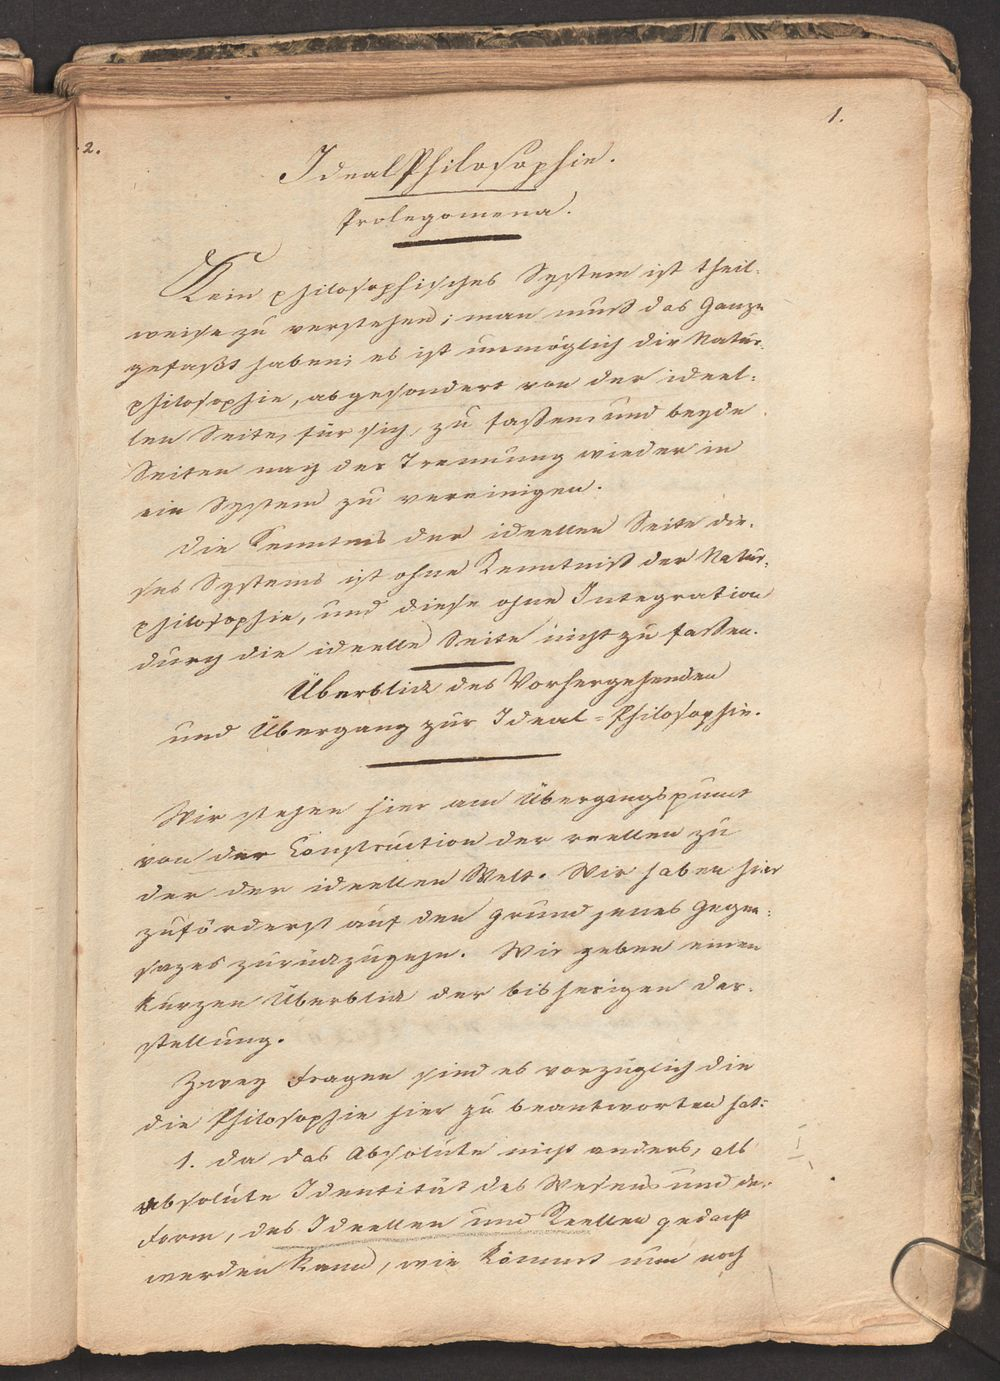 1.
2.
IdealPhilosophie.
Prolegomena.
Kein philosophisches System ist theil-
weise zu verstehen; man muß das Ganze
gefaßt haben; es ist unmöglich die Natur-
philosophie, abgesondert von der ideel-
len Seite, für sich, zu faßen, und beyde
Seiten nach der Trennung wieder in
ein System zu vereinigen.
Die Kenntnis der ideellen Seite die-
ses Systems ist ohne Kenntniß der Natur-
philosophie, und diese ohne Integration
durch die ideelle Seite nicht zu faßen.
Überblick des Vorhergehenden
und Übergang zur Ideal-Philosophie.
Wir stehen hier am Übergangspunct
von der Construction der reellen zu
der der ideellen Welt. Wir haben hier
zuförderst auf den Grund jenes Gegen-
sazes zurückzugehn. Wir geben einen
kurzen Überblick der bisherigen Dar-
stellung.
Zwey Fragen sind es vorzüglich die
die Philosophie hier zu beantworten hat:
1. da das Absolute nicht anders, als
absolute Identität des Wesens und der
Form, des Ideellen und Reellen gedacht
werden kann, wie kömmt nun noch